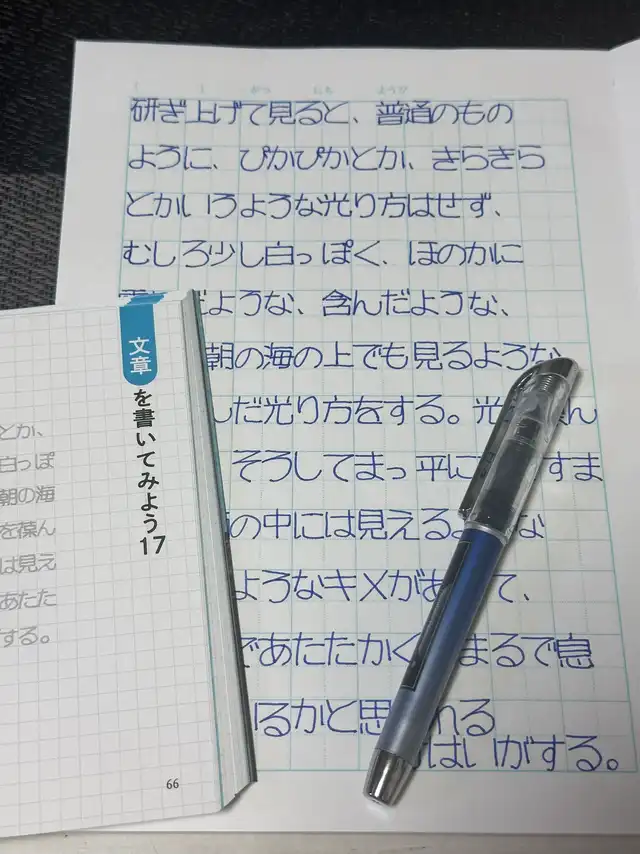 がつ にち ようび
研ぎ上げて見ると、普通のもの
ように、ぴかぴかとか、きらきら
とかいうような光り方はせず、
むしろ少し白っぽく、ほのかに
だような、含んだような、
朝の海の上でも見るような
んだ光り方をする。光
そろしてまっ平に すま
の中には見える な
ようなキメがあ て、
であたたかく まるで息
るかと思 れる
はいがする。
文章を書いてみよう17
とか、
白っぽ
朝の海
を葆ん
は見え
あたた
する。
66